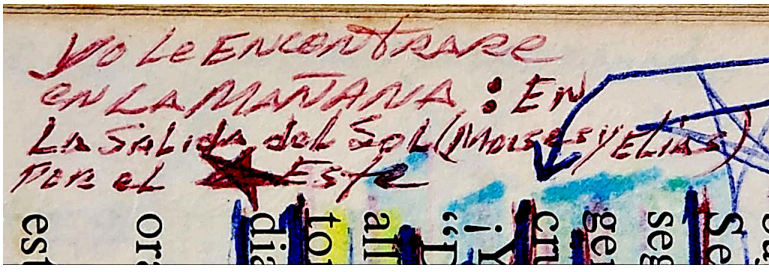 YO Le ENCONTRARE
EN LA MAÑANA : EN
LA SALida del SOL (Moises y ELias)
POR eL ESte
est
ora
dia
tor
all
“D
¡Y
cru
ger
seg
Se